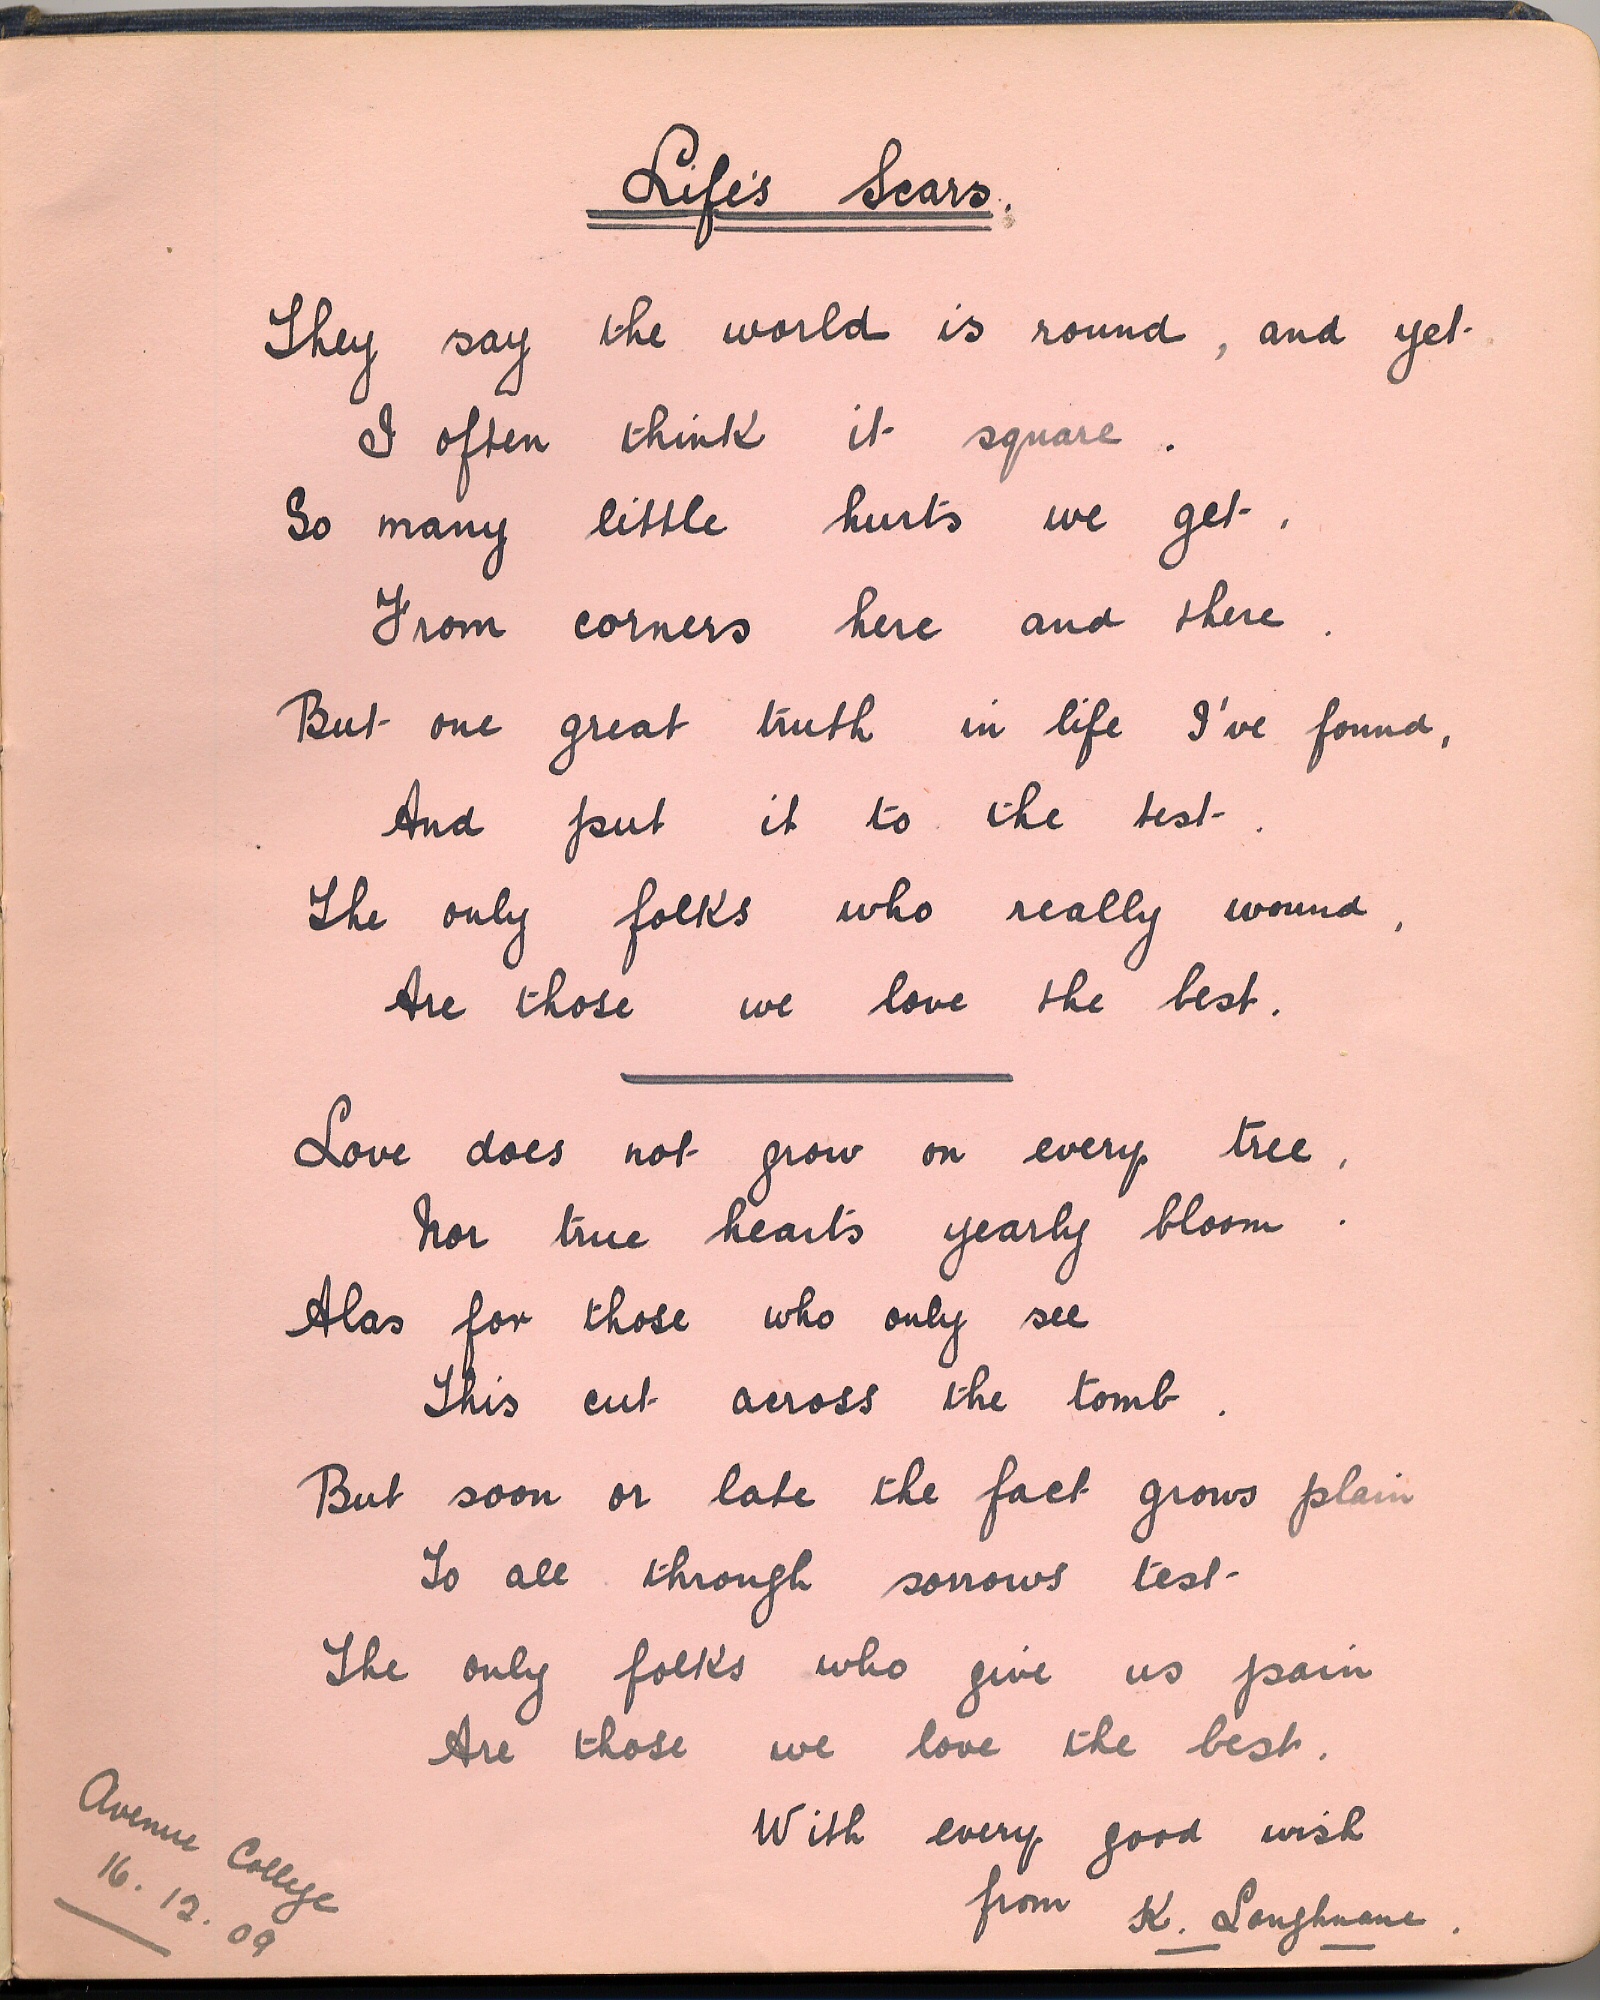 Life's Scars.
They say the world is round, and yet
I often think it square.
So many little hurts we get,
From corners here and there.
But one great truth in life I've found,
And put it to the test.
The only folks who really wound,
Are those we love the best.
Love does not grow on every tree,
Nor true hearts yearly bloom.
Alas for those who only see
This cut across the tomb.
But soon or late the fact grows plain
To all through sorrows test
The only folks who give us pain
Are those we love the best.
With every good wish
from K. Loughnane.
Avenue College
16. 12. 09